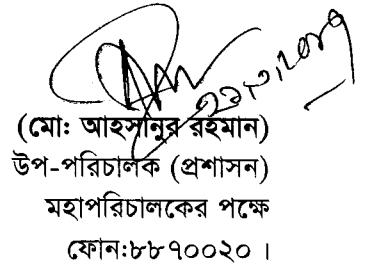 (মো: আহসানুর রহমান)
উপ-পরিচালক (প্রশাসন)
মহাপরিচালকের পক্ষে
ফোন:৮৮৭০০২০ ।